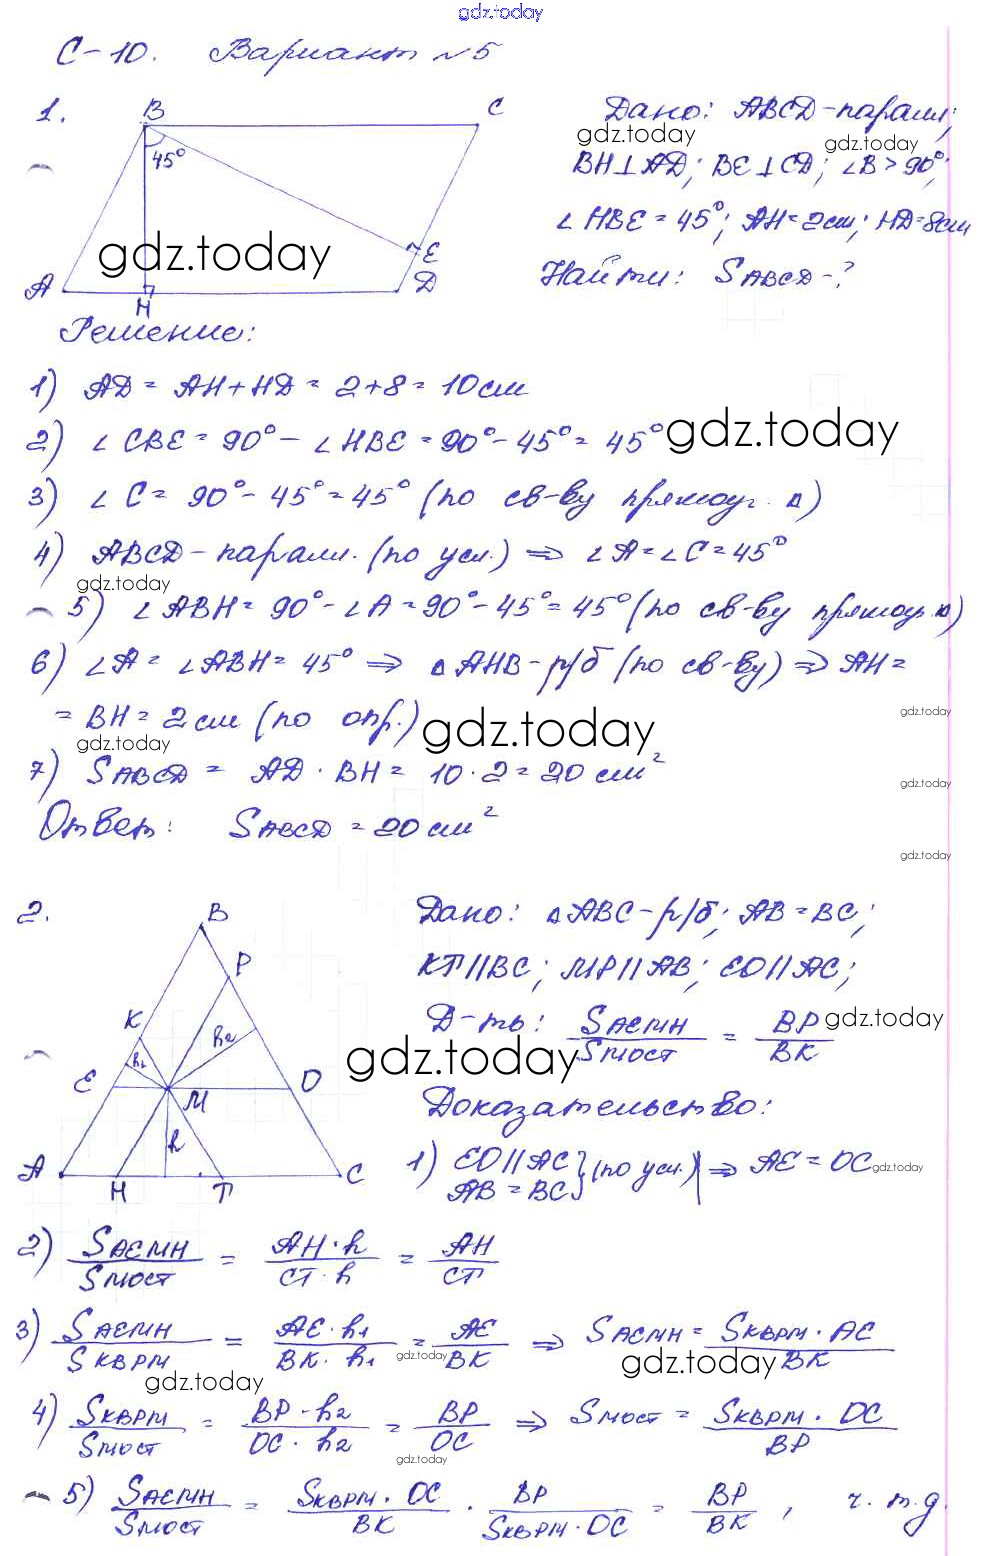 gdz.today
С-10. Вариант №5
1.
B
C
45°
E
A
H
D
gdz.today
Дано: ABCD-парал;
gdz.today
gdz.today
BH⊥AD; BE⊥CD; ∠B>90°;
∠HBE=45°; AH=2см; HD=8см
Найти: SABCD-?
Решение:
1) AD = AH+HD = 2+8 = 10см
2) ∠CBE = 90° - ∠HBE = 90° - 45° = 45°
gdz.today
3) ∠C = 90° - 45° = 45° (по св-ву прямоуг. Δ)
4) ABCD-парал. (по усл.) ⇒ ∠A = ∠C = 45°
gdz.today
5) ∠ABH = 90° - ∠A = 90° - 45° = 45° (по св-ву прямоуг. Δ)
6) ∠A = ∠ABH = 45° ⇒ ΔAHB-р/б (по св-ву) ⇒ AH =
= BH = 2см (по опр.)
gdz.today
gdz.today
gdz.today
7) SABCD = AD · BH = 10 · 2 = 20 см²
gdz.today
Ответ: SABCD = 20 см²
gdz.today
2.
B
P
K
h₂
h₁
E
O
M
h
A
H
T
C
Дано: ΔABC-р/б; AB=BC;
KT||BC; MP||AB; EO||AC;
Д-ть: SAEMH / SMOCT = BP / BK
gdz.today
gdz.today
Доказательство:
1) EO||AC
AB=BC } (по усл.) ⇒ AE = OC
gdz.today
2) SAEMH / SMOCT = AH·h / CT·h = AH / CT
3) SAEMH / SKBPM = AE·h₁ / BK·h₁ = AE / BK ⇒ SAEMH = SKBPM·AE / BK
gdz.today
gdz.today
gdz.today
4) SKBPM / SMOCT = BP·h₂ / OC·h₂ = BP / OC ⇒ SMOCT = SKBPM·OC / BP
gdz.today
5) SAEMH / SMOCT = SKBPM·OC / BK · BP / SKBPM·OC = BP / BK, ч.т.д.